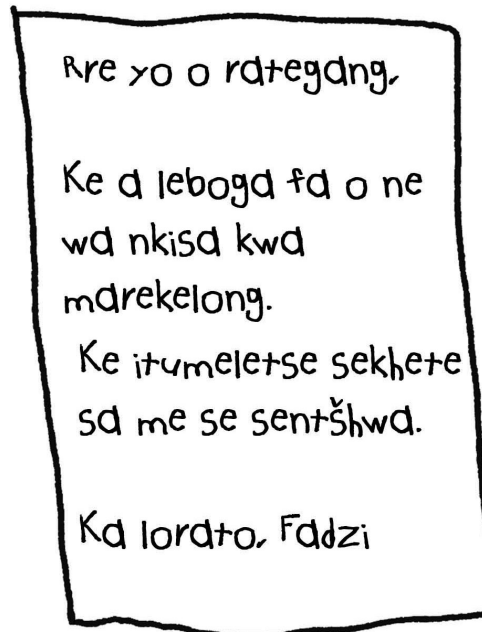 Rre yo o rategang,
Ke a leboga fa o ne
wa nkisa kwa
marekelong.
Ke itumeletse sekhete
sa me se sentšhwa.
Ka lorato, Fadzi